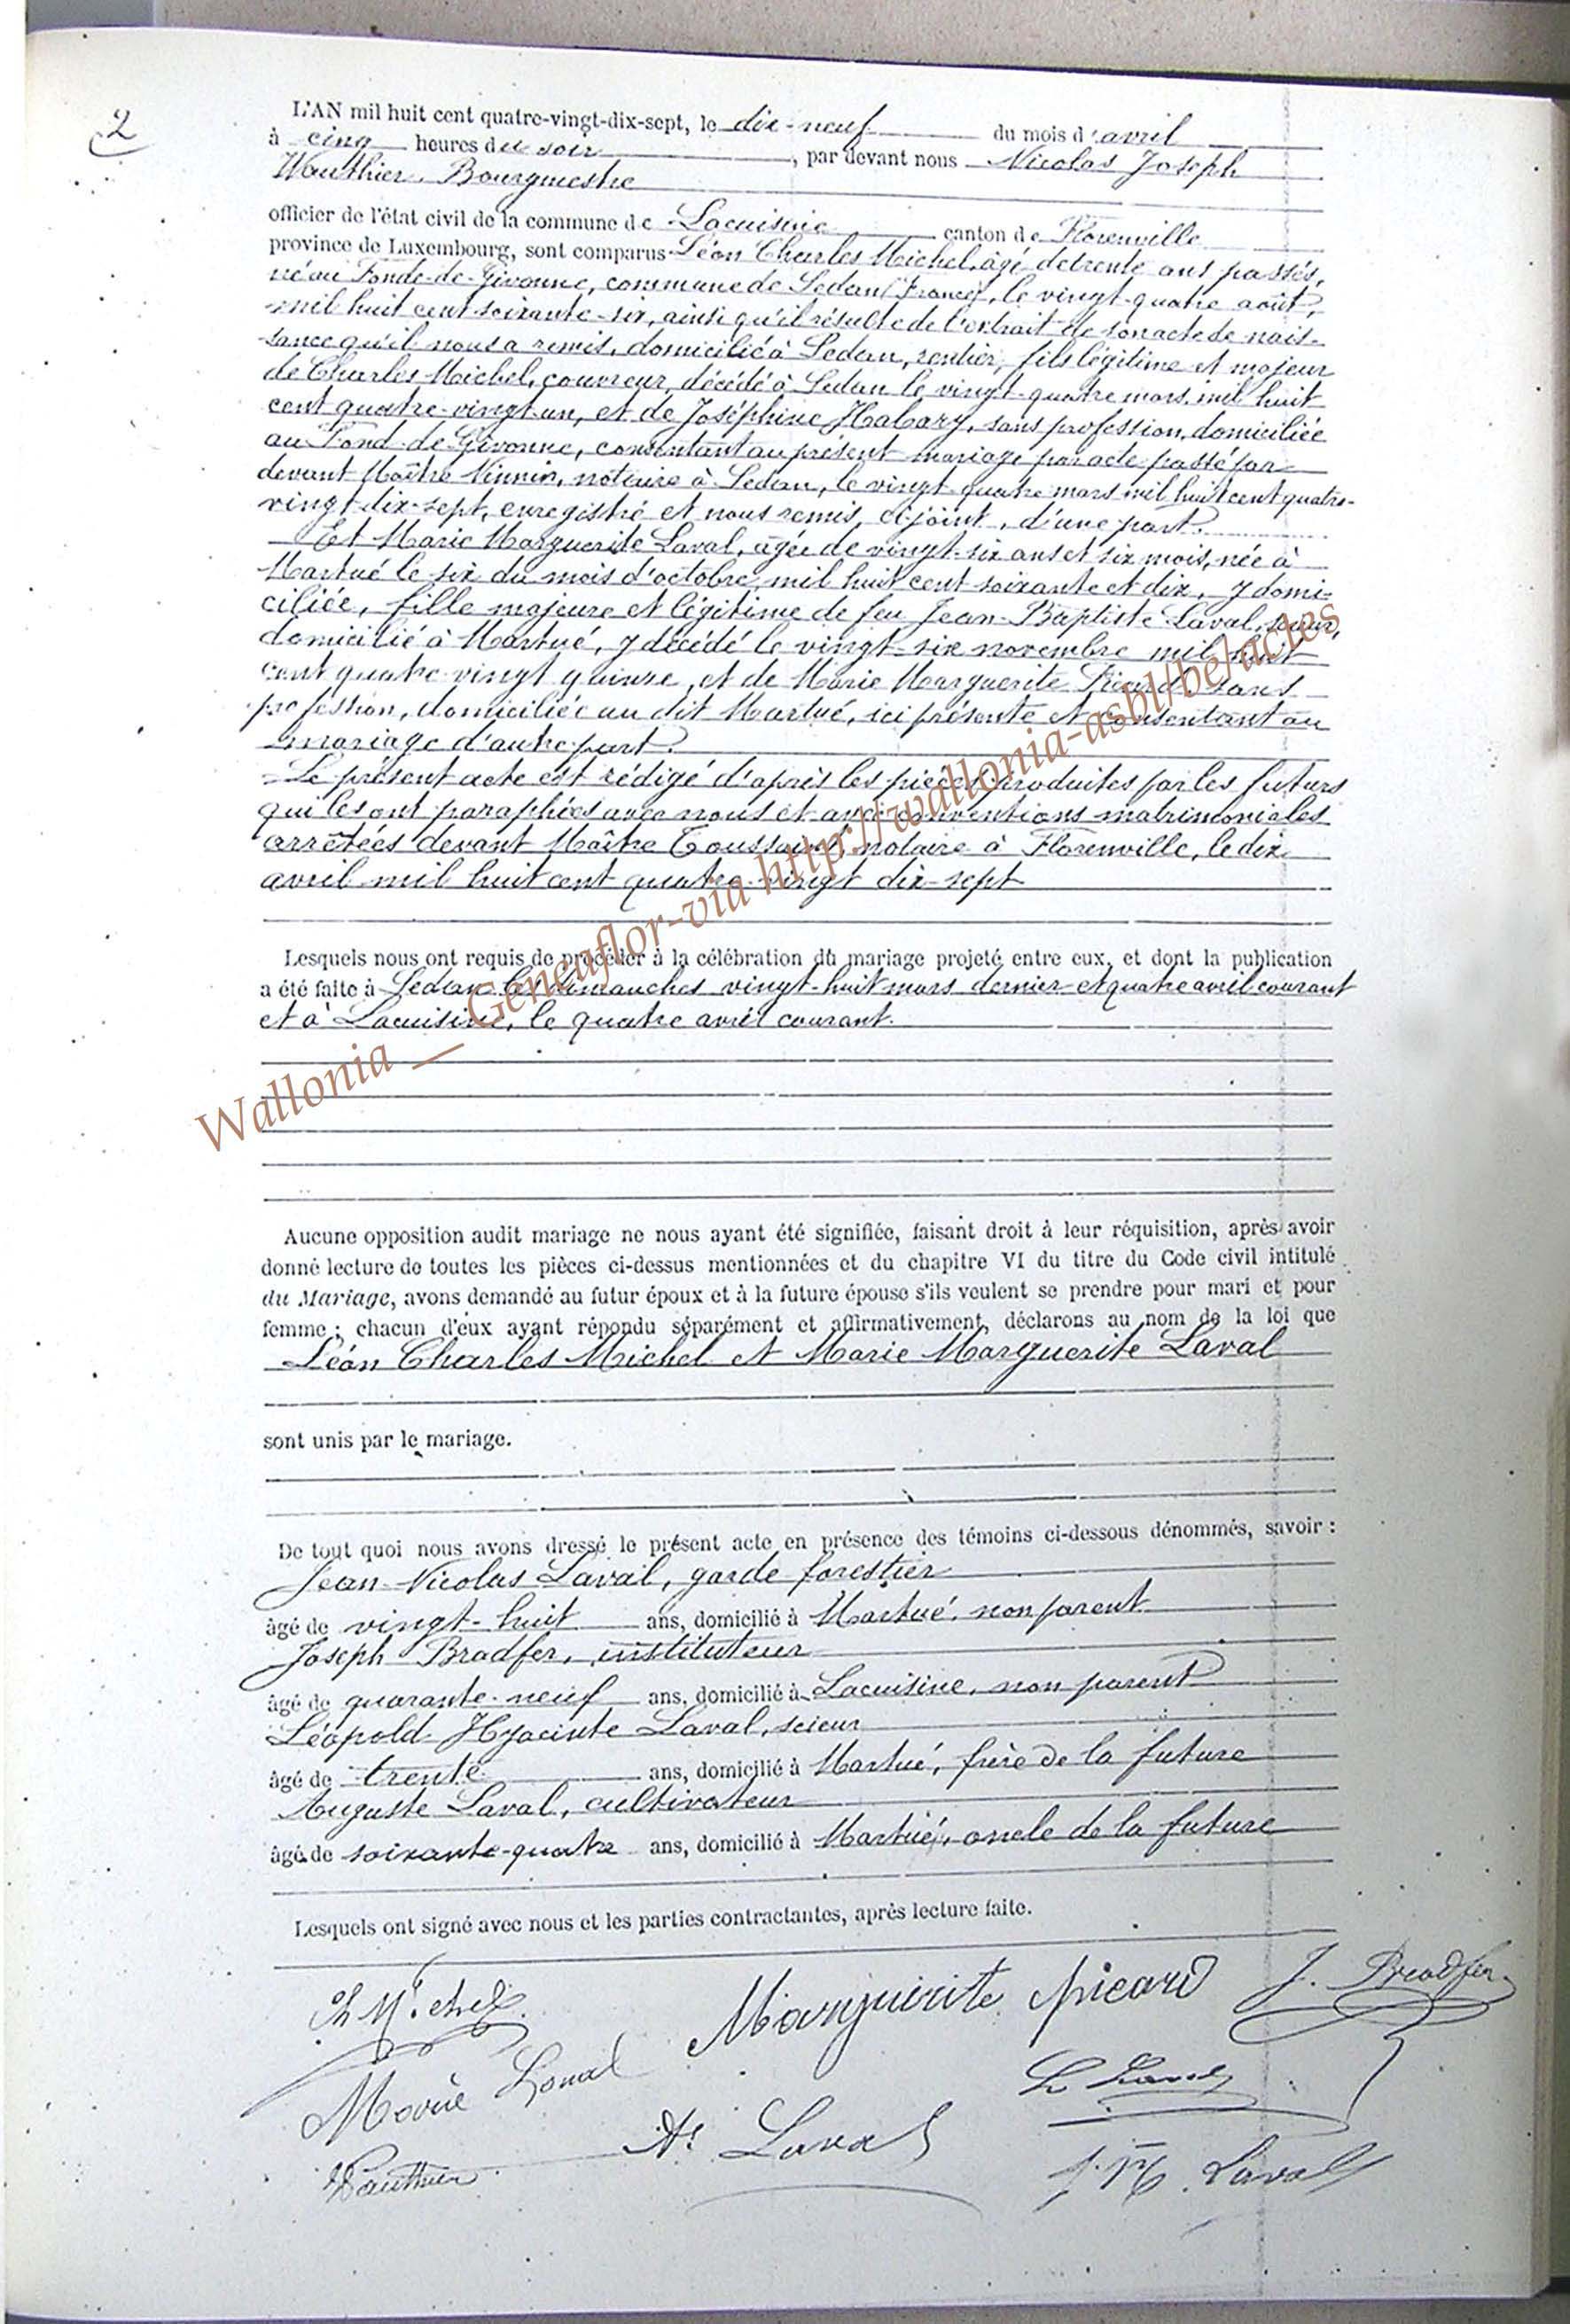 2
L'AN mil huit cent quatre-vingt-dix-sept, le dix-neuf du mois d'avril
à cinq heures du soir, par devant nous Nicolas Joseph
Wauthier, Bourgmestre
officier de l'état civil de la commune de Lacuisine canton de Florenville
province de Luxembourg, sont comparus Léon Charles Michel, âgé de trente ans passés,
né au Fonde-de-Givonne, commune de Sedan (France), le vingt-quatre août,
mil huit cent soixante-six, ainsi qu'il résulte de l'extrait de son acte de nais-
sance qu'il nous a remis, domicilié à Sedan, rentier, fils légitime et majeur
de Charles Michel, couvreur, décédé à Sedan le vingt-quatre mars, mil huit
cent quatre-vingt-un, et de Joséphine Habary, sans profession, domiciliée
au Fond-de-Givonne, consentant au présent mariage par acte passé par
devant Maître notaire à Sedan, le vingt-quatre mars mil huit cent quatre-
vingt-dix-sept, enregistré et nous remis, ci-joint, d'une part.
Et Marie Marguerite Laval, âgée de vingt-six ans et six mois, née à
Martué le six du mois d'octobre mil huit cent soixante et dix, y domi-
ciliée, fille majeure et légitime de feu Jean-Baptiste Laval, scieur,
domicilié à Martué, y décédé le vingt-six novembre mil huit
cent quatre-vingt quinze, et de Marie Marguerite Picard sans
profession, domiciliée au dit Martué, ici présente et consentant au
mariage d'autre part.
Le présent acte est rédigé d'après les pièces produites par les futurs
qui les ont paraphées avec nous et avec conventions matrimoniales
arrêtées devant Maître Toussaint, notaire à Florenville, le dix
avril mil huit cent quatre-vingt dix-sept
Lesquels nous ont requis de procéder à la célébration du mariage projeté entre eux, et dont la publication
a été faite à Sedan les dimanches vingt-huit mars dernier et quatre avril courant
et à Lacuisine, le quatre avril courant.
Wallonia __ Geneaflor-via http://wallonia-asbl/be/actes
Aucune opposition audit mariage ne nous ayant été signifiée, faisant droit à leur réquisition, après avoir
donné lecture de toutes les pièces ci-dessus mentionnées et du chapitre VI du titre du Code civil intitulé
du Mariage, avons demandé au futur époux et à la future épouse s'ils veulent se prendre pour mari et pour
femme ; chacun d'eux ayant répondu séparément et affirmativement, déclarons au nom de la loi que
Léon Charles Michel et Marie Marguerite Laval
sont unis par le mariage.
De tout quoi nous avons dressé le présent acte en présence des témoins ci-dessous dénommés, savoir :
Jean-Nicolas Laval, garde forestier
âgé de vingt-huit ans, domicilié à Martué, non parent
Joseph Bradfer, instituteur
âgé de quarante-neuf ans, domicilié à Lacuisine, non parent
Léopold Hyacinte Laval, scieur
âgé de trente ans, domicilié à Martué, frère de la future
Auguste Laval, cultivateur
âgé de soixante-quatre ans, domicilié à Martué, oncle de la future
Lesquels ont signé avec nous et les parties contractantes, après lecture faite.
Ch Michel Marguerite picard J. Bradfer
Marie Laval L Laval
Wauthier At Laval J. N. Laval